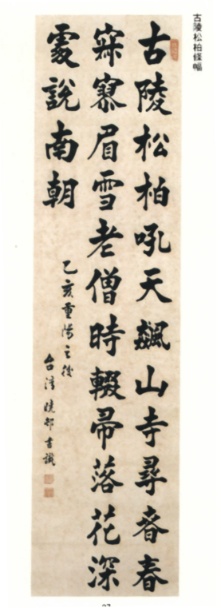 古陵松柏條幅
古陵松柏吼天飆山寺尋旾春
寂寥眉雪老僧時輟帚落花深
處說南朝
乙亥重陽之後
曉邨書識